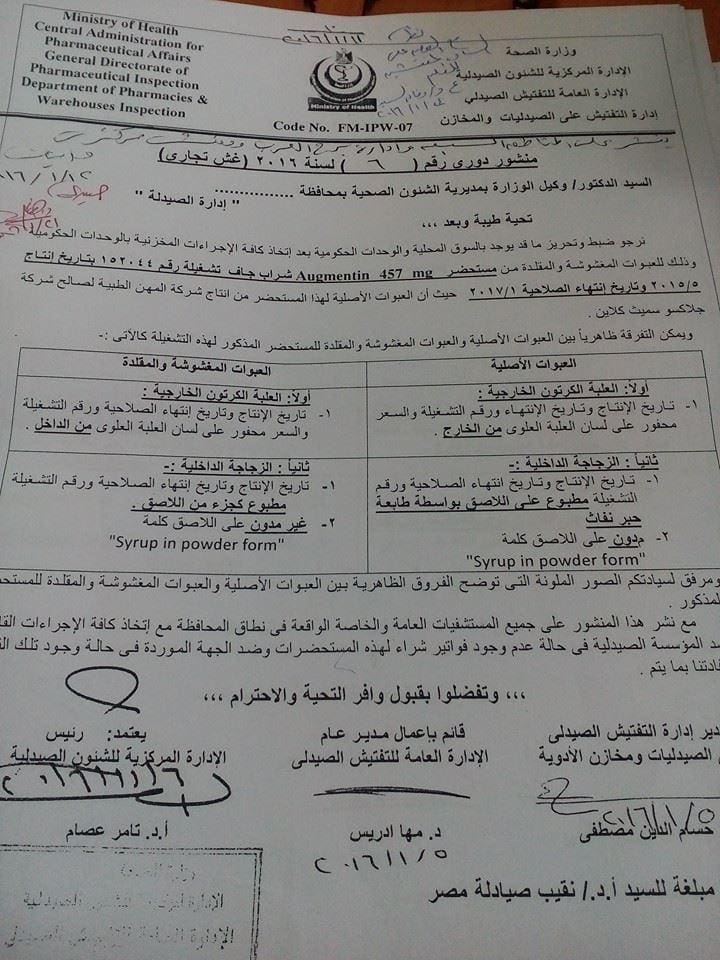 Ministry of Health
Central Administration for
Pharmaceutical Affairs
General Directorate of
Pharmaceutical Inspection
Department of Pharmacies &
Warehouses Inspection
Ministry of Health
Code No. FM-IPW-07
وزارة الصحة
الإدارة المركزية للشئون الصيدلية
الإدارة العامة للتفتيش الصيدلي
إدارة التفتيش على الصيدليات والمخازن
منشور دورى رقم ( ٦ ) لسنة ٢٠١٦ (غش تجارى)
السيد الدكتور/ وكيل الوزارة بمديرية الشئون الصحية بمحافظة ...............
" إدارة الصيدلة "
تحية طيبة وبعد ،،،
نرجو ضبط وتحريز ما قد يوجد بالسوق المحلية والوحدات الحكومية بعد إتخاذ كافة الإجراءات المخزنية بالوحدات الحكومية
وذلك للعبوات المغشوشة والمقلدة من مستحضر Augmentin 457 mg شراب جاف تشغيلة رقم ١٥٢٠٤٤ بتاريخ إنتاج
٢٠١٥/٥ وتاريخ إنتهاء الصلاحية ٢٠١٧/١ حيث أن العبوات الأصلية لهذا المستحضر من انتاج شركة المهن الطبية لصالح شركة
جلاكسو سميث كلاين .
ويمكن التفرقة ظاهرياً بين العبوات الأصلية والعبوات المغشوشة والمقلدة للمستحضر المذكور لهذه التشغيلة كالآتى :-
العبوات الأصلية
أولاً: العلبة الكرتون الخارجية :
١- تاريخ الإنتاج وتاريخ الإنتهاء ورقم التشغيلة والسعر
محفور على لسان العلبة العلوى من الخارج .
ثانياً : الزجاجة الداخلية :-
١- تاريخ الإنتاج وتاريخ انتهاء الصلاحية ورقم
التشغيلة مطبوع على اللاصق بواسطة طابعة
حبر نفاث
٢- مدون على اللاصق كلمة
"Syrup in powder form"
العبوات المغشوشة والمقلدة
أولاً: العلبة الكرتون الخارجية :
١- تاريخ الإنتاج وتاريخ إنتهاء الصلاحية ورقم التشغيلة
والسعر محفور على لسان العلبة العلوى من الداخل .
ثانياً : الزجاجة الداخلية :-
١- تاريخ الإنتاج وتاريخ إنتهاء الصلاحية ورقم التشغيلة
مطبوع كجزء من اللاصق .
٢- غير مدون على اللاصق كلمة
"Syrup in powder form"
ومرفق لسيادتكم الصور الملونة التى توضح الفروق الظاهرية بين العبوات الأصلية والعبوات المغشوشة والمقلدة للمستحض
لمذكور .
مع نشر هذا المنشور على جميع المستشفيات العامة والخاصة الواقعة فى نطاق المحافظة مع إتخاذ كافة الإجراءات القا
ضد المؤسسة الصيدلية فى حالة عدم وجود فواتير شراء لهذه المستحضرات وضد الجهة الموردة فى حالة وجود تلك الف
فادتنا بما يتم .
وتفضلوا بقبول وافر التحية والاحترام ،،،
دير إدارة التفتيش الصيدلى
ى الصيدليات ومخازن الأدوية
٢٠١٦/١/٥
حسام الدين مصطفى
قائم بإعمال مدير عام
الإدارة العامة للتفتيش الصيدلى
د. مها ادريس
٢٠١٦/١/٥
يعتمد: رئيس
الإدارة المركزية للشئون الصيدلية
أ.د. تامر عصام
مبلغة للسيد أ.د./ نقيب صيادلة مصر